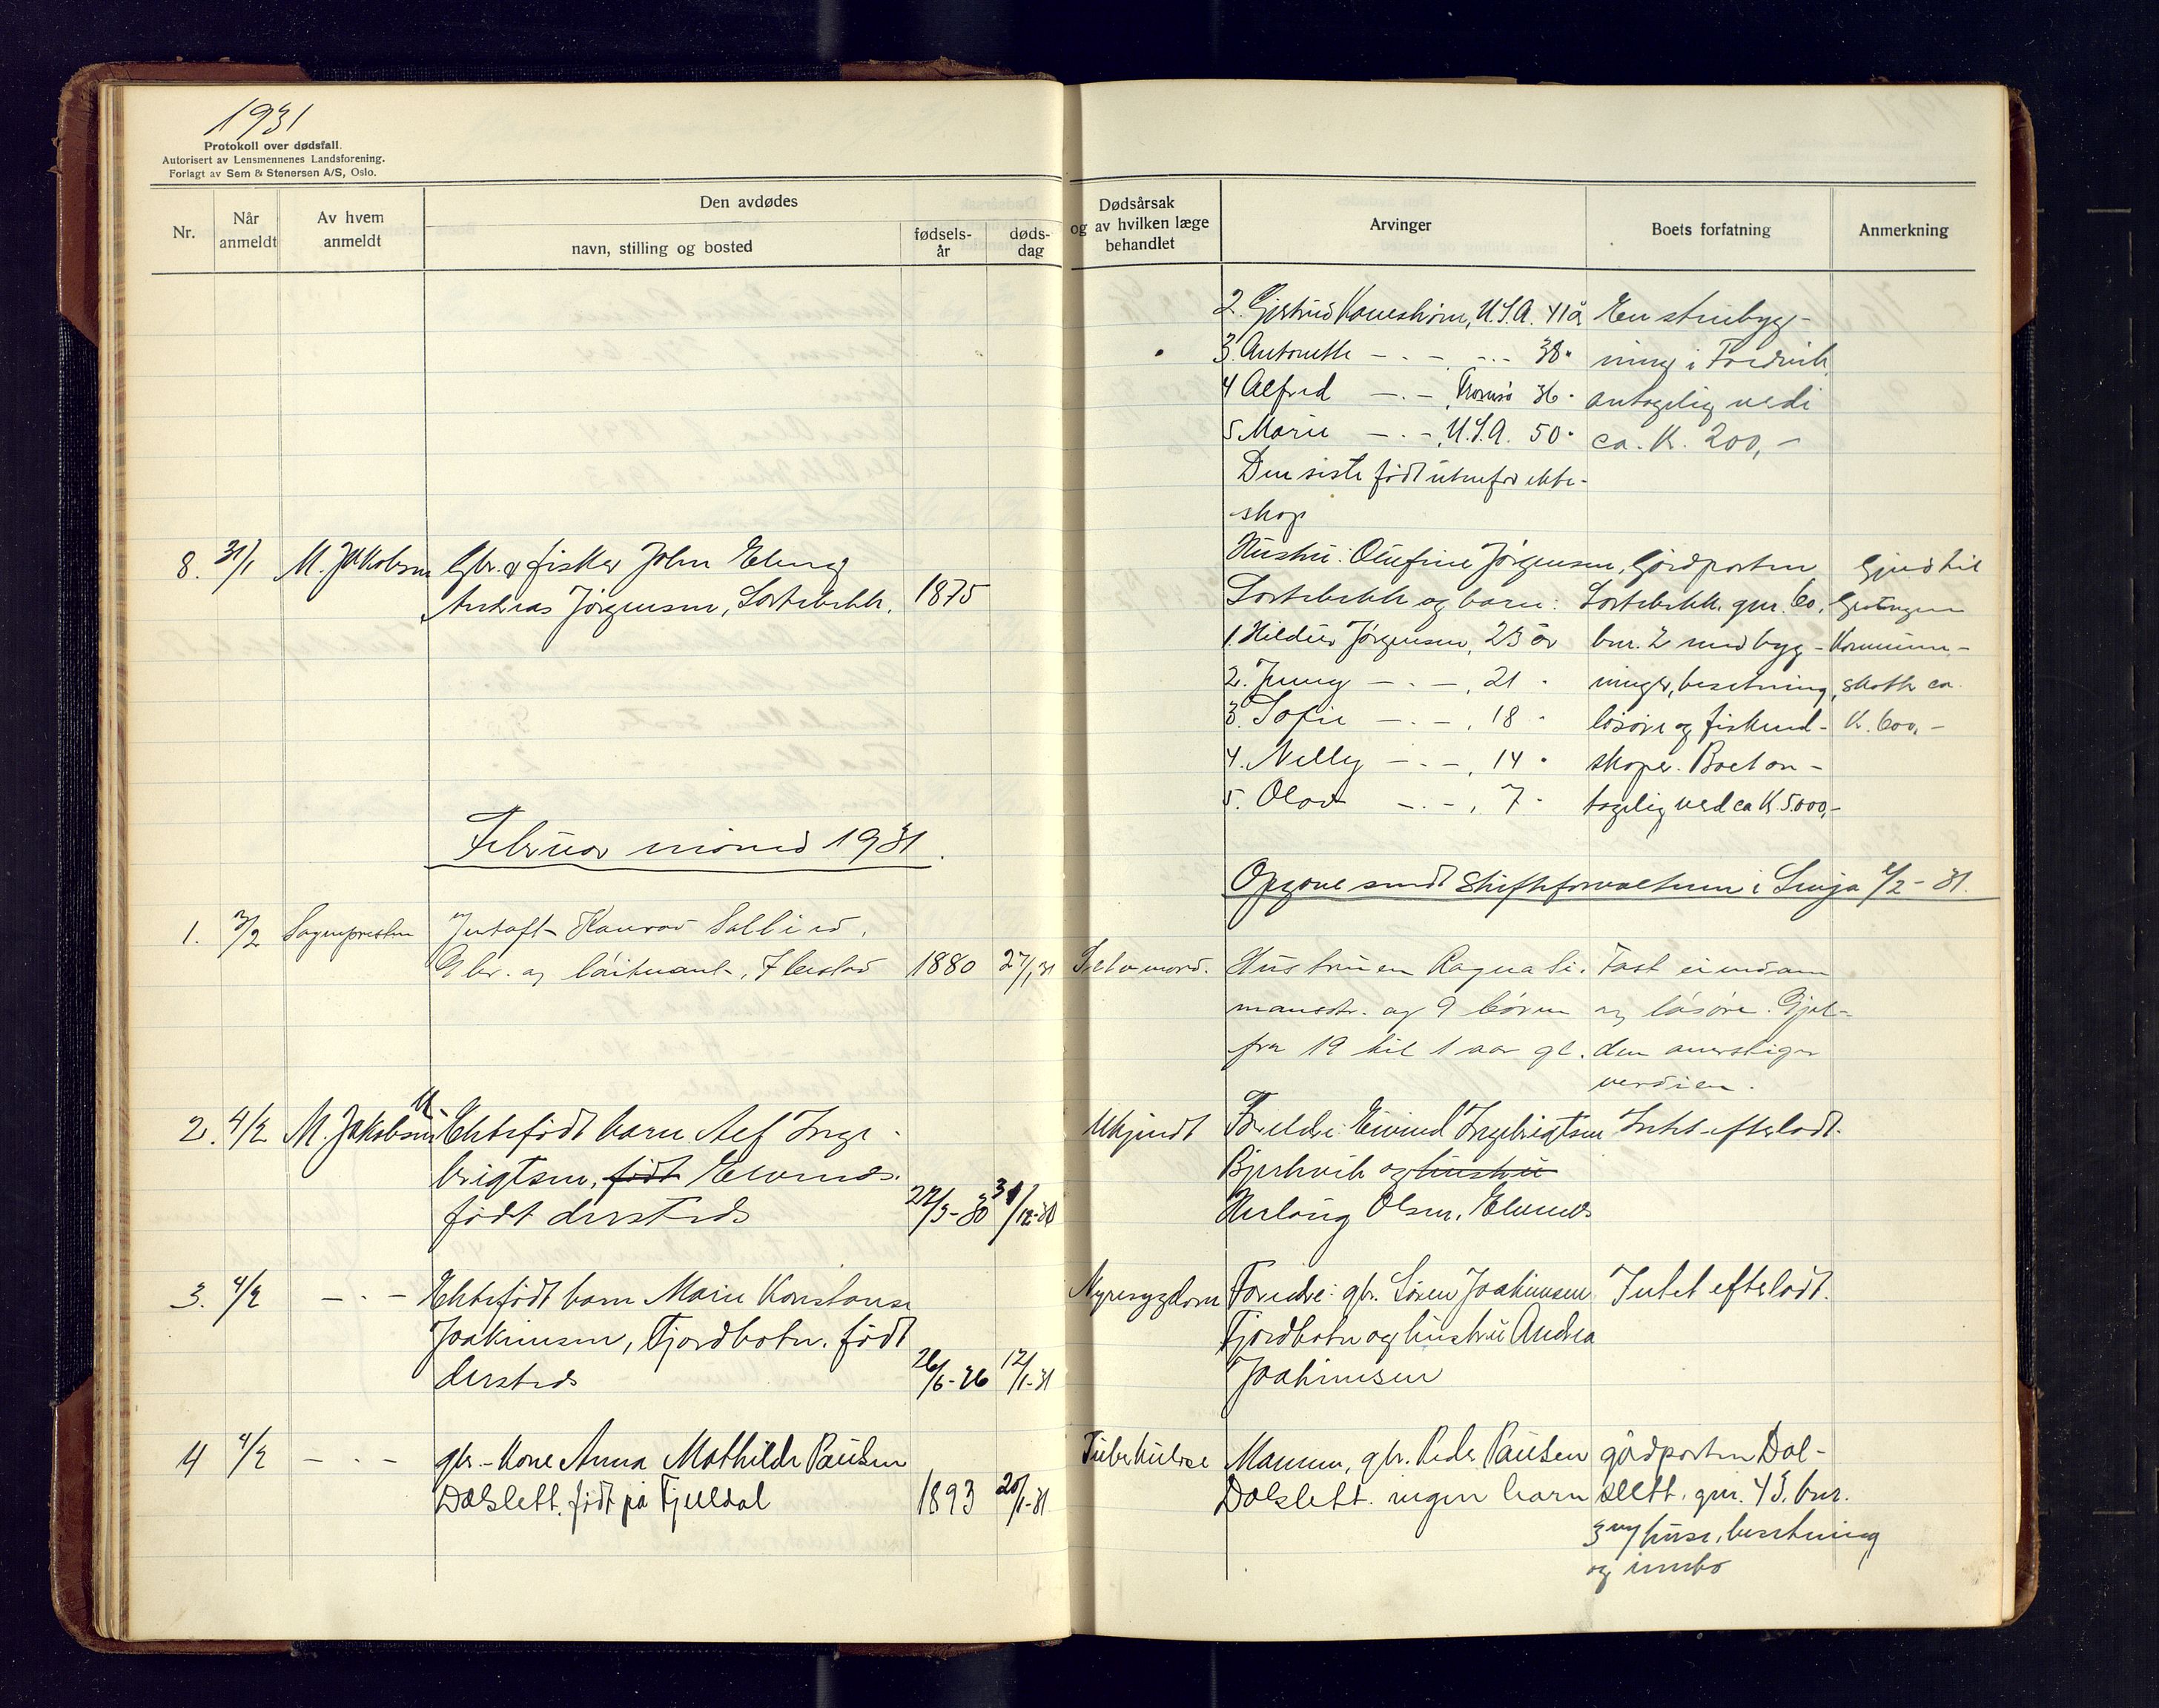 1931
Protokoll over dødsfall.
Autorisert av Lensmennenes Landsforening.
Forlagt av Sem & Stenersen A/S, Oslo.
Nr.
Når anmeldt
Av hvem anmeldt
Den avdødes
navn, stilling og bosted
fødsels-år
døds-dag
Dødsårsak og av hvilken læge behandlet
Arvinger
Boets forfatning
Anmerkning
2. Gjertrud U.S.A. 41 år
3. Antonette — . — - . - 38 "
4 Alfred — . — , Tromsø 36 "
5 Marie — . — , U.S.A. 50 "
Den siste født utenfor ekte-
skap
En stuebygg-
ning i
antagelig verdi
ca. K. 200,-
8. 31/1 M. Jakobsen Gbr. og fisker John Eling
Andreas Jørgensen, Sortebekk. 1875
Hustru: Olufine Jørgensen,
Sortebekk og barn:
1. Hildur Jørgensen, 23 år
2. Jenny — . — , 21 "
3. Sofie — . — , 18 "
4. Nelly — . — , 14 "
5. Olav — . — , 7 "
Gårdparten
Sortebekk. gnr. 60,
bnr. 2 med byg-
ninger, besetning,
løsøre og fiskered-
skaper. Boet an-
tagelig verd ca K. 5.000,-
Gjeld til
Kommune-
skatt ca.
K. 600,-
Februar måned 1931.
Opgave sendt Skifteforvalteren i Senja 2/2-31.
1. 3/2 Sognepresten Konrad
Gbr. og løitnant, 1880 27/1 31
Selvmord.
Hustruen Ragna Si-
mansdtr. og 9 børn
fra 19 til 1 aar gl.
Fast eiendom
og løsøre. Gjel-
den overstiger
verdien.
2. 4/2 M. Jakobsen U Ektefødt barn Alf Inge-
brigtsen, født Elvenes.
født dersteds 22/3-30 31/12-30
Ukjendt
Foreldre: Eivind Ingebrigtsen
Bjerkvik og hustru
Herlaug Olsen, Elvenes
Intet efterladt.
3. 4/2 — . — Ektefødt barn Marie Konstanse
Joakimsen, Fjordbotn. født
dersteds 26/6-26 12/1-31
Nyresygdom
Foreldre: gbr. Søren Joakimsen
Fjordbotn og hustru Andrea
Joakimsen
Intet efterladt.
4 4/2 — . — gbr.-kone Anna Mathilde Paulsen
Dalslett. født på Fjelldal 1893 20/1-31
Tuberkulose
Mannen, gbr. Peder Paulsen
Dalslett. ingen barn
gårdparten Dal-
slett. gnr. 43. bnr.
3 og huse, besetning
og innbo